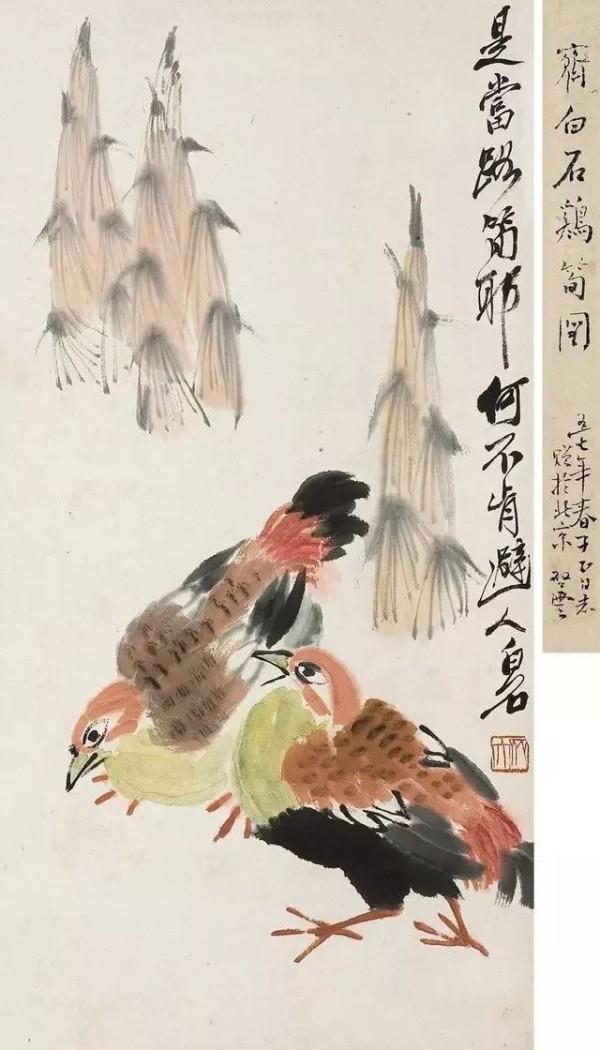 是當路筍耶何不肯避人白石
齊白石鷄筍图
五七年春
贈於北京